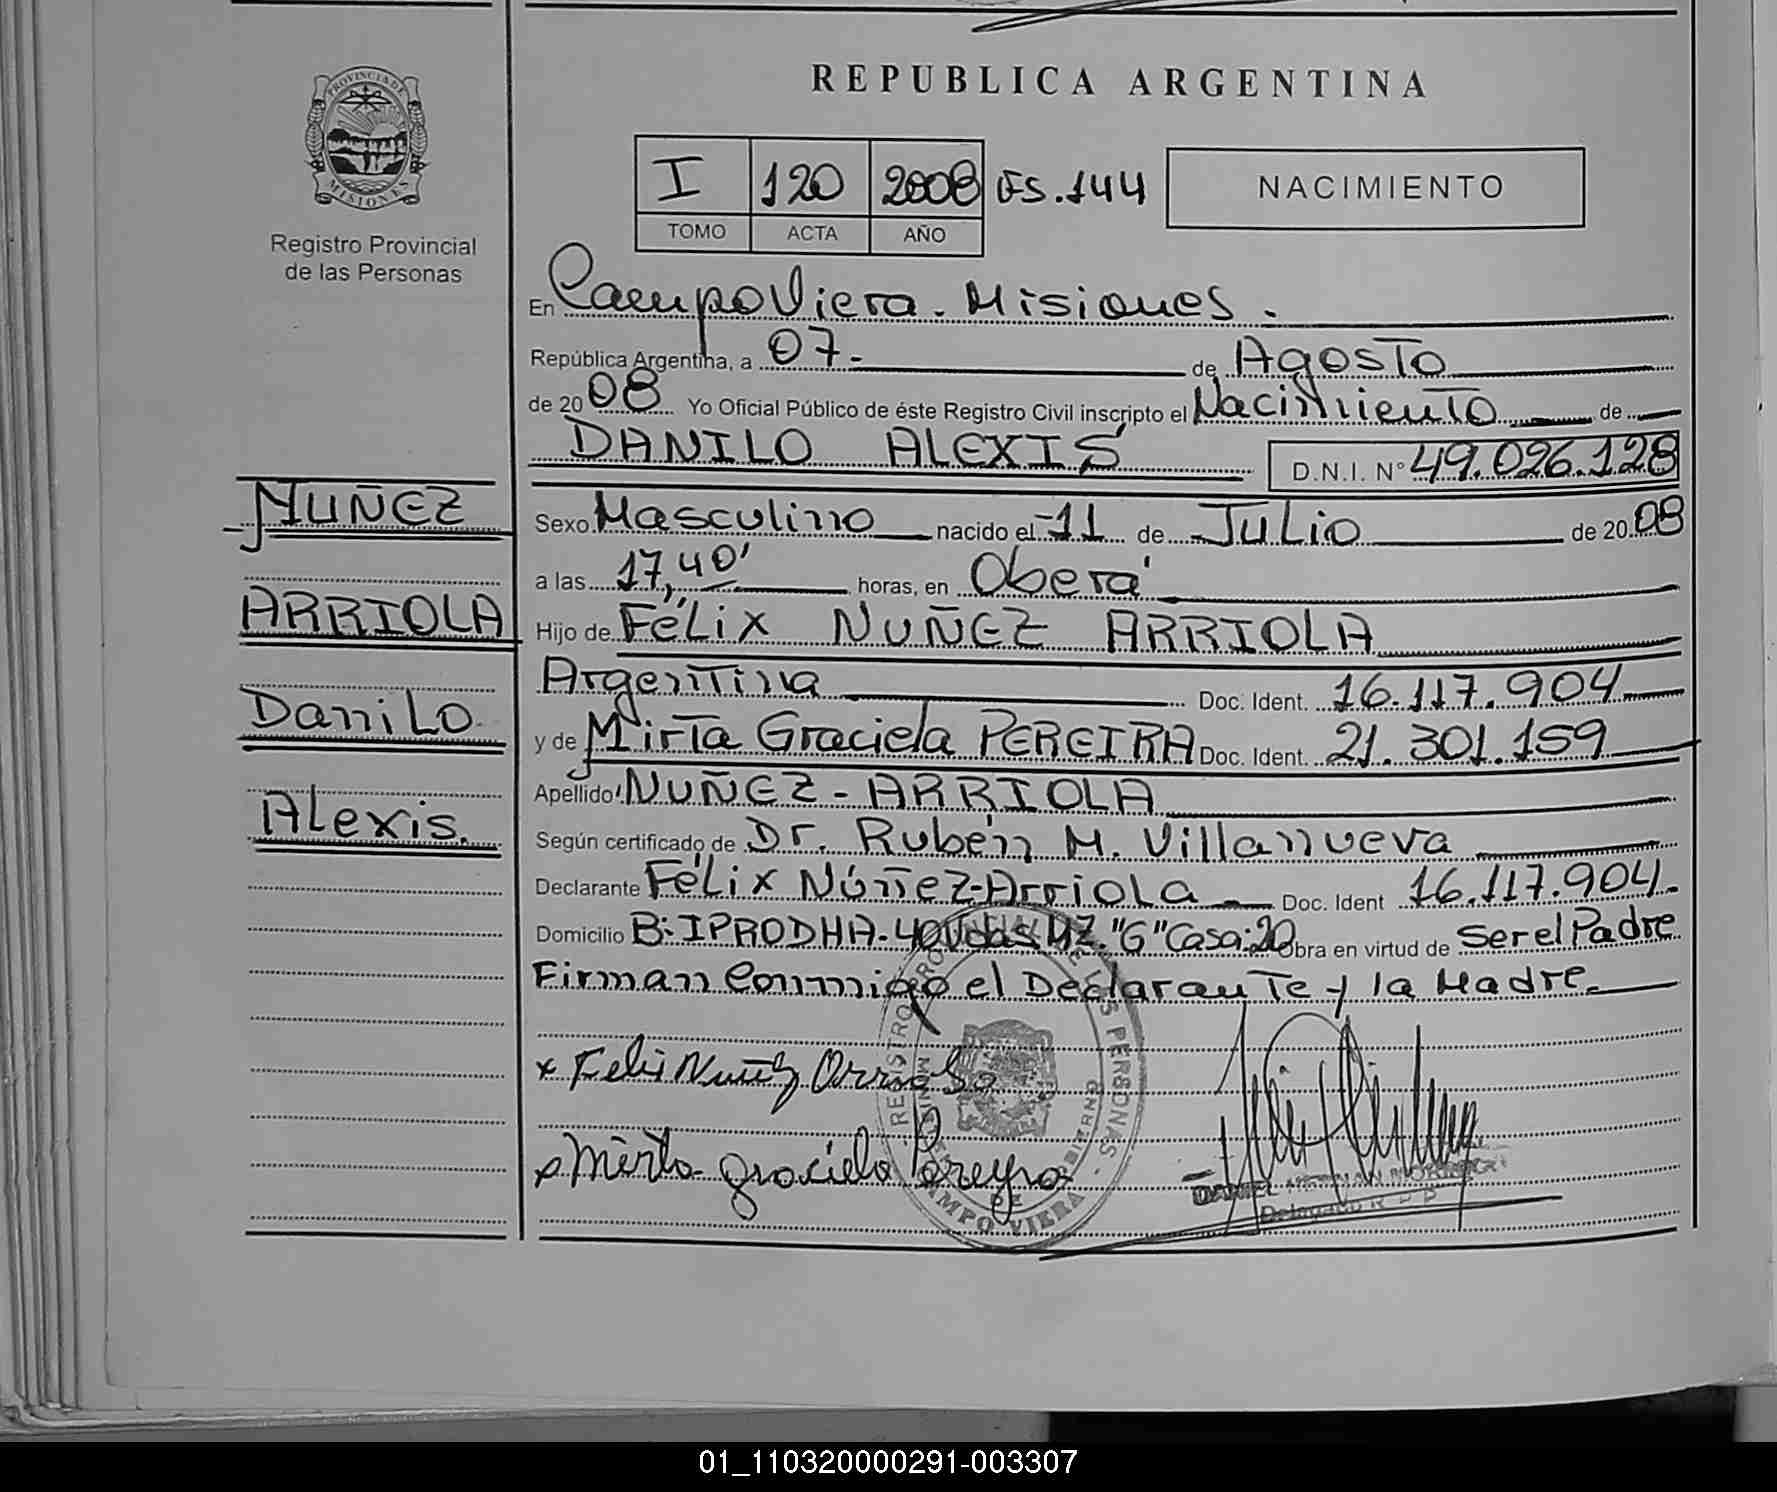 REPUBLICA ARGENTINA
PROVINCIA DE
MISIONES
Registro Provincial
de las Personas
I 120 2008 FS.144
TOMO ACTA AÑO
NACIMIENTO
En Campo Viera - Misiones.
República Argentina, a 07- de Agosto
de 2008 Yo Oficial Público de éste Registro Civil inscripto el Nacimiento de
DANILO ALEXIS D.N.I. N° 49.026.128
NUÑEZ
ARRIOLA
Danilo
Alexis.
Sexo Masculino nacido el 11 de Julio de 2008
a las 17,40' horas, en Oberá
Hijo de Félix NUÑEZ ARRIOLA
Argentina Doc. Ident. 16.117.904
y de Mirta Graciela PEREIRA Doc. Ident. 21.301.159
Apellido NUÑEZ - ARRIOLA
Según certificado de Dr. Rubén M. Villanueva
Declarante Félix Núñez-Arriola Doc. Ident 16.117.904.
Domicilio B: IPRODHA-40Vdas MZ."G" Casa:20 Obra en virtud de Ser el Padre
Firman Conmigo el Declarante y la Madre.
x Felix Nuñez Arriola
x Mirta graciela Pereyra
REGISTRO PROVINCIAL DE LAS PERSONAS
CAMPO VIERA
DANIEL HERNAN
Delegado R P P
01_110320000291-003307